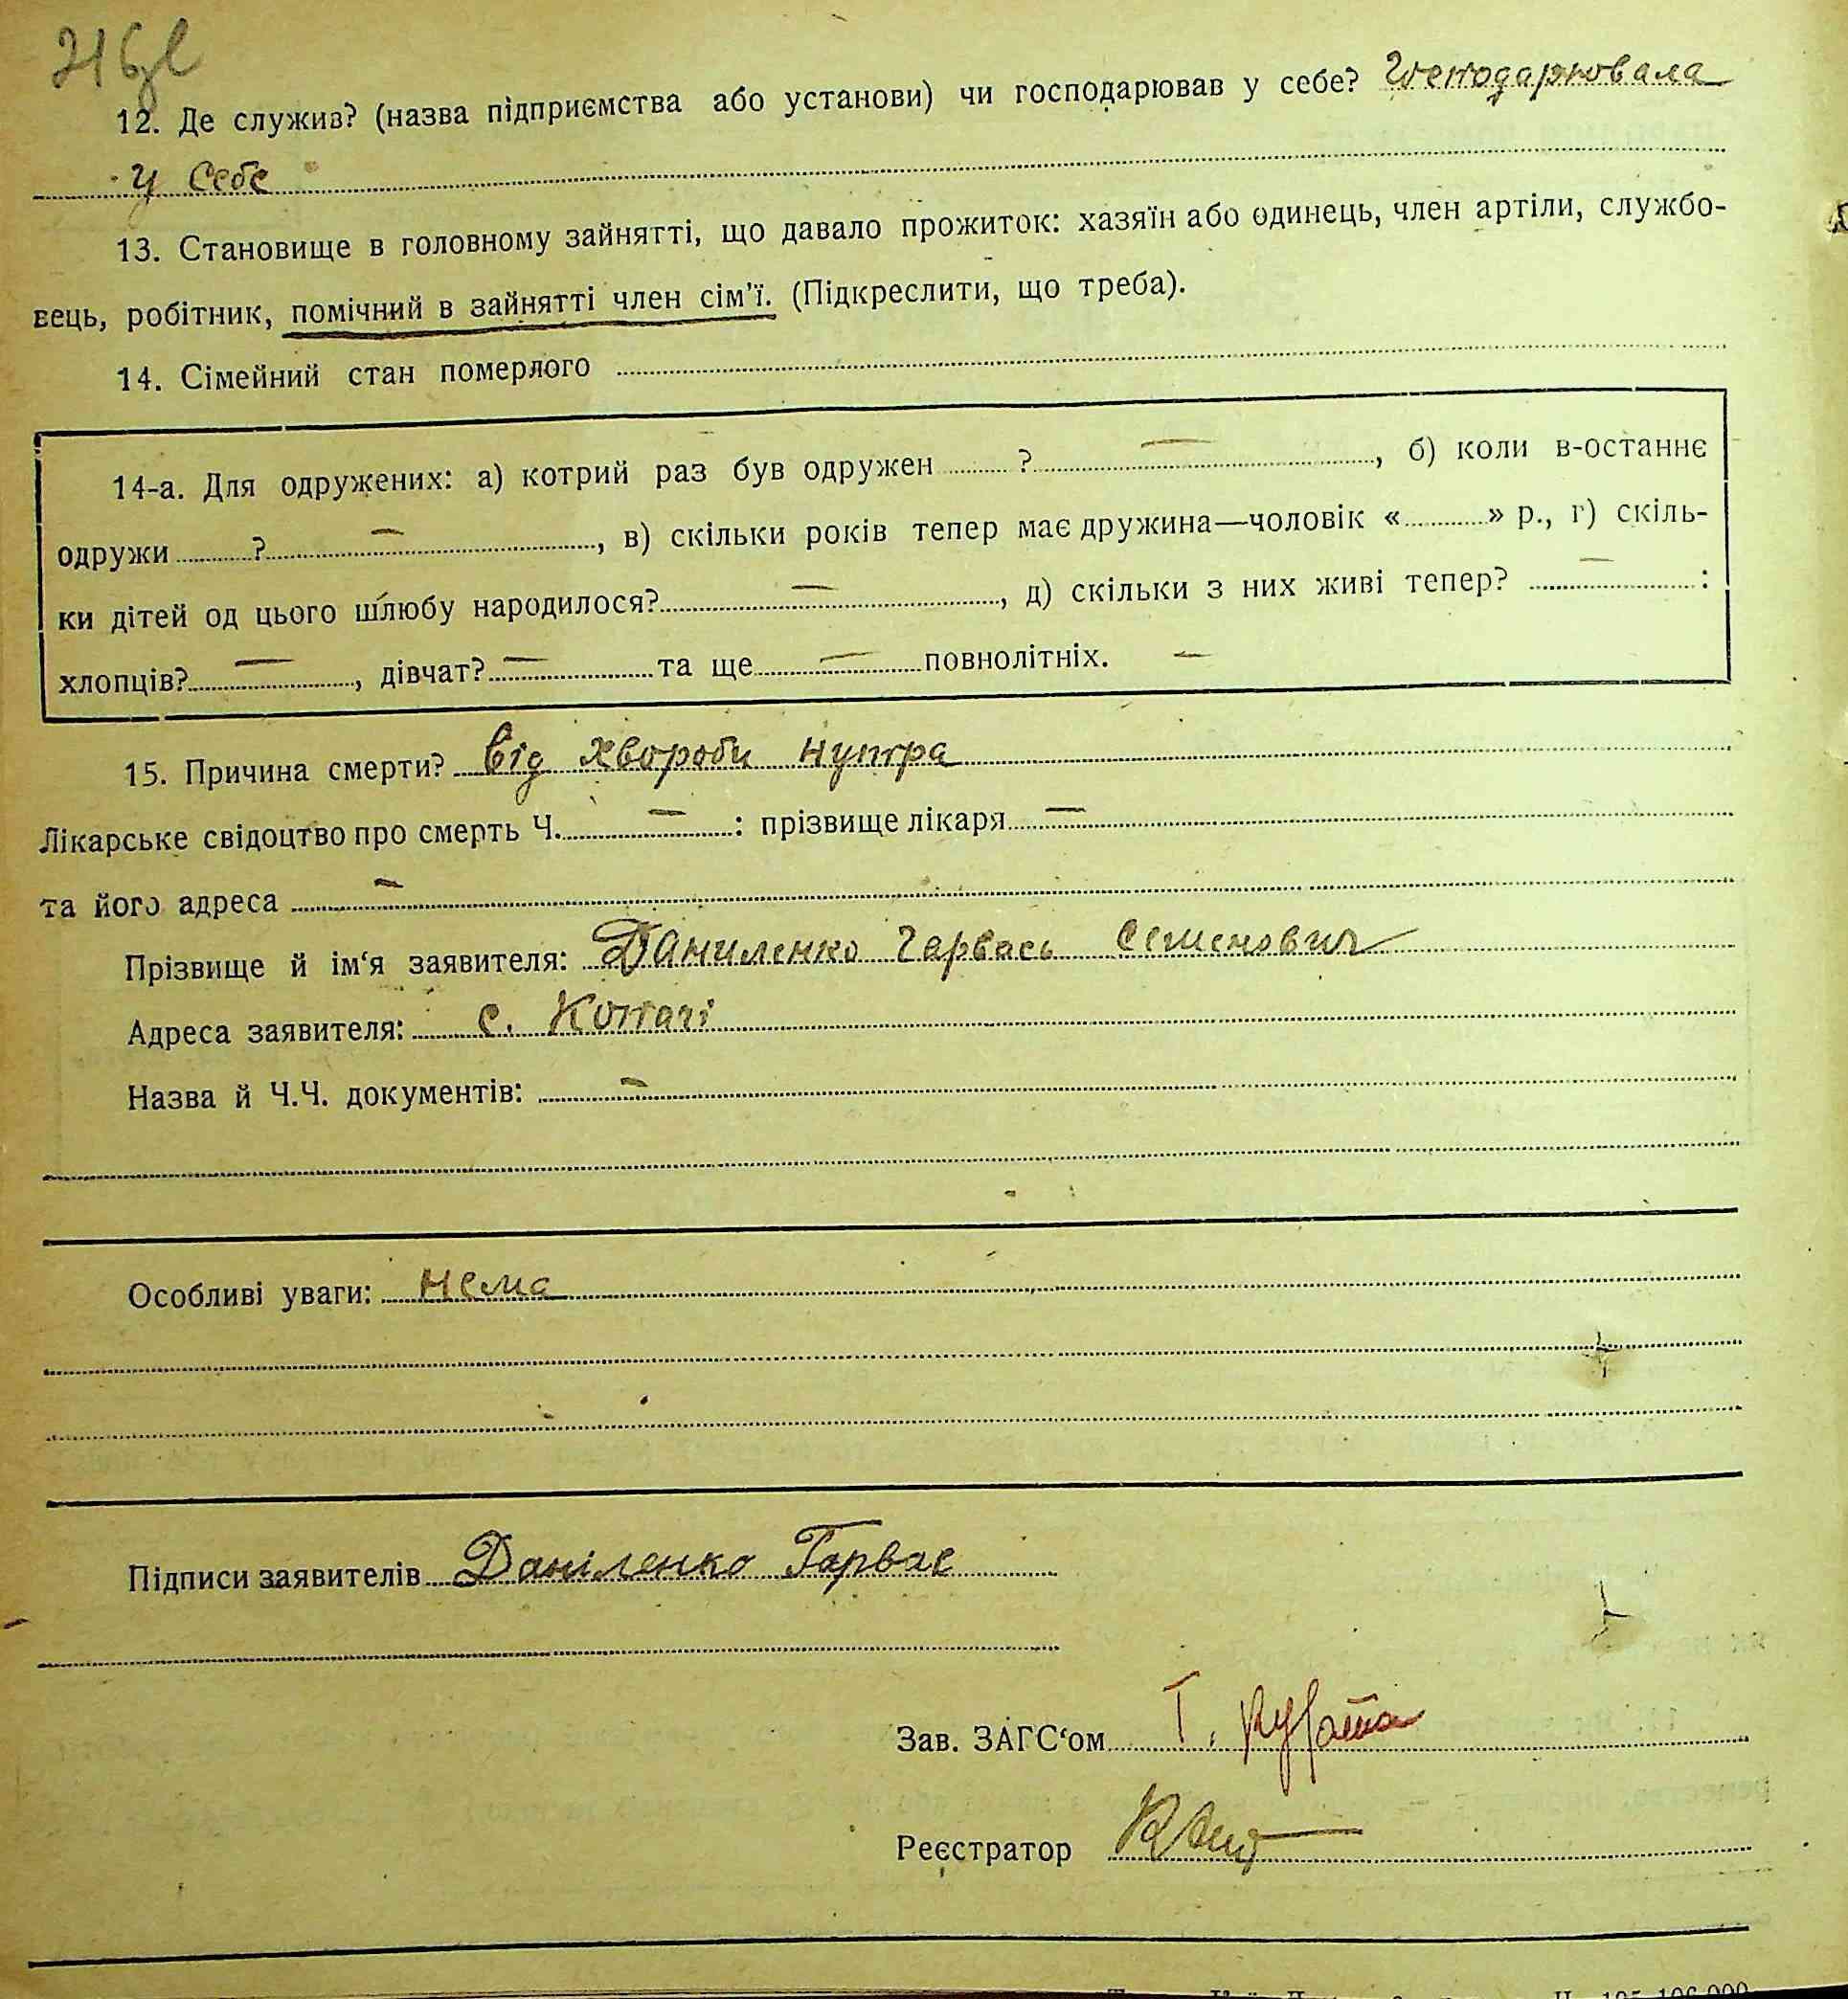 12. Де служив? (назва підприємства або установи) чи господарював у себе? Господарювала
у себе
13. Становище в головному зайнятті, що давало прожиток: хазяїн або одинець, член артіли, службо-
вець, робітник, помічний в зайнятті член сім'ї. (Підкреслити, що треба).
14. Сімейний стан померлого
14-а. Для одружених: а) котрий раз був одружен ? —, б) коли в-останнє
одружи ? —, в) скільки років тепер має дружина—чоловік « » р., г) скіль-
ки дітей од цього шлюбу народилося? —, д) скільки з них живі тепер? — :
хлопців? —, дівчат? — та ще — повнолітніх. —
15. Причина смерти? Від хвороби нутра
Лікарське свідоцтво про смерть Ч. — : прізвище лікаря —
та його адреса —
Прізвище й ім‘я заявителя: Даниленко Гарвась Семенович
Адреса заявителя: с. Копачі
Назва й Ч.Ч. документів: —
Особливі уваги: нема
Підписи заявителів Даніленко Гарвас
Зав. ЗАГС‘ом Г.
Реєстратор